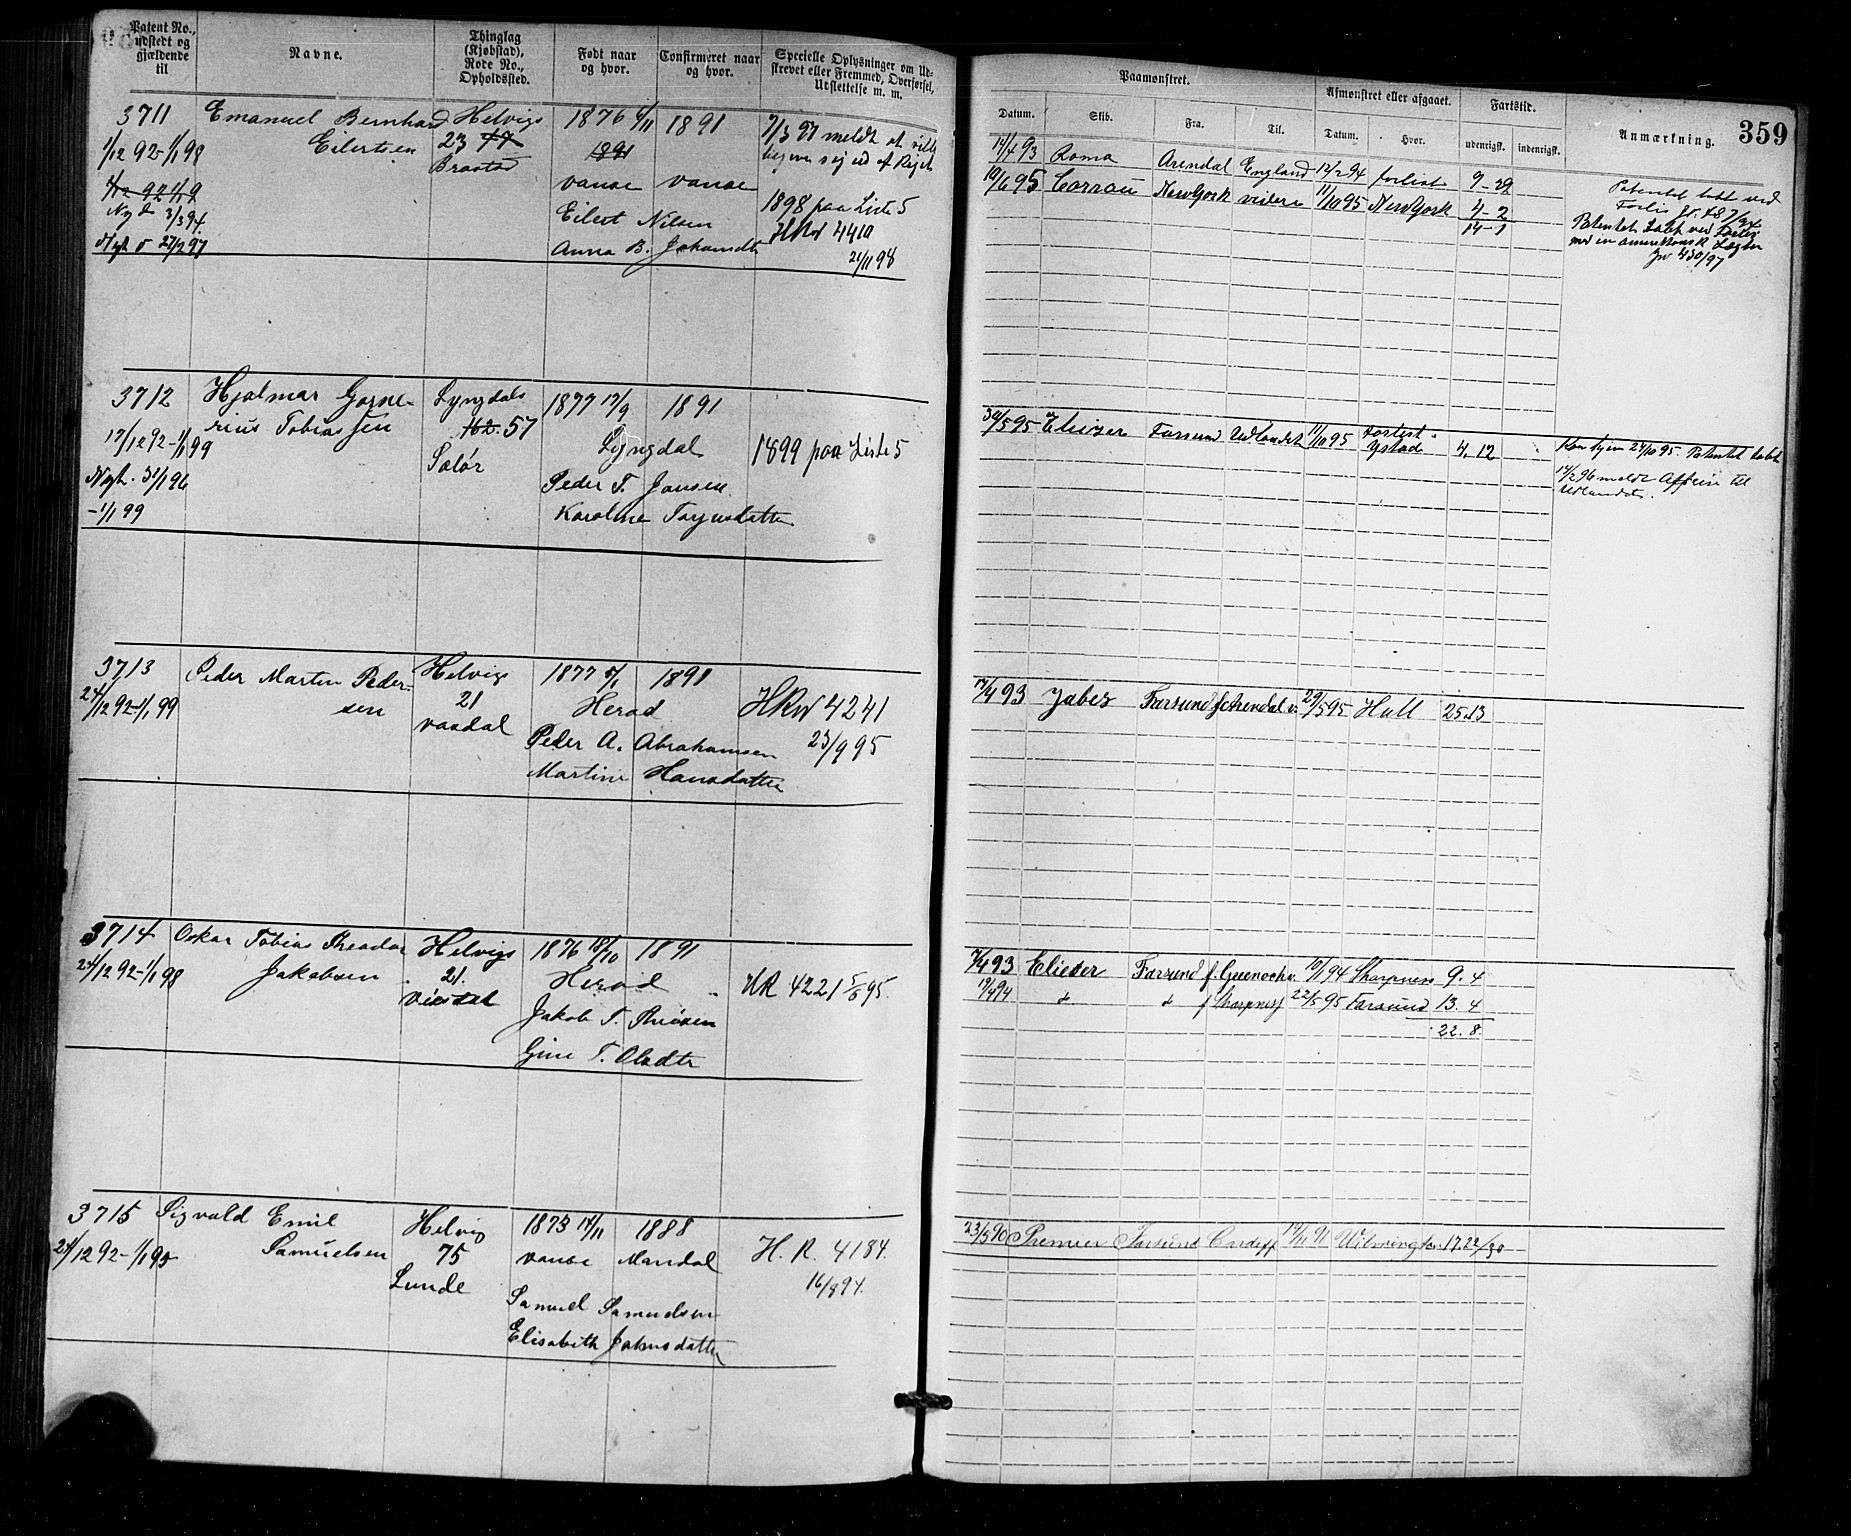 Patent No.,
udstedt og
gjældende
til
Navne.
Thinglag
(Kjøbstad),
Rode No.,
Opholdssted.
Født naar
og hvor.
Confirmeret naar
og hvor.
Specielle Oplysninger om Ud-
skrevet eller Fremmed, Overførsel,
Udslettelse m. m.
3711
Emanuel Bernhard
Eilertsen
Helvigs
23 77
Braastad
1876 6/11
1891
1891
Vanse
Vanse
Eilert Nilsen
Anna B. Johansdtr
1/12 92-1/1 98
Ny 3/3 94
Nyt 27/2 97
7/3 97 meldt at ville
begive sig ud af Riget
1898 paa Liste 5
HRW 4410
21/11 98
3712
Hjalmar Gorne-
rius Tobiassen
Lyngdals
162. 57
1877 17/9
1891
17/12 92-1/1 99
Lyngdal
1899 paa Liste 5
Nyt. 31/1 96
-1/1 99
Peder T. Jansen
Karoline Torjusdatter
3713
Peder Martin Peder-
sen
Helvigs
21
Vaadal
1877 5/1
1891
24/12 92-1/1 99
Herad
HRW 4241
23/9 95
Peder A. Abrahamsen
Martine Hansdatter
3714
Oskar Tobias Theodor
Jakobsen
Helvigs
21.
1876 18/10
1891
24/12 92-1/1 98
Herad
HR 4221 5/8 95
Jakob T.
Gine T. Olsdtr
3715
Sigvald Emil
Samuelsen
Helvig
75
Lunde
1873 14/11
1888
24/12 92-1/1 95
Vanse
Mandal
H. R. 4184.
16/8 94.
Samuel Samuelsen
Elisabeth Jakobsdatter
Paamønstret.
Afmønstret eller afgaaet.
Fartstid.
Anmærkning.
359
Datum.
Skib.
Fra.
Til.
Datum.
Hvor.
udenrigsk.
indenrigsk.
14/4 93 Roma Arendal England 12/2 94 forlist 9-29
19/6 95 NewYork videre 11/10 95 NewYork 4-2
14-1
Patentet tabt ved
Forlis
Patentet tabt ved Forlis
med en amerikansk
Jr 430/97
30/5 95 Eliezer Farsund Udlandet 11/10 95 forlist
Ystad 4, 12
Kom hjem 24/10 95. Patentet tabt
14/2 96 meldt Afreise til
Udlandet.
17/4 93 Jabez Farsund f. Arendal 29/5 95 Hull 25.13
7/4 93 Elieser Farsund f. Greenock 10/1 94 Sharpness 9. 4
19/4 94 " " f Sharpness 22/5 95 Farsund 13. 4
22. 8.
23/5 90 Premier Farsund Cardiff 19/11 91 Wilmington 17.22/30